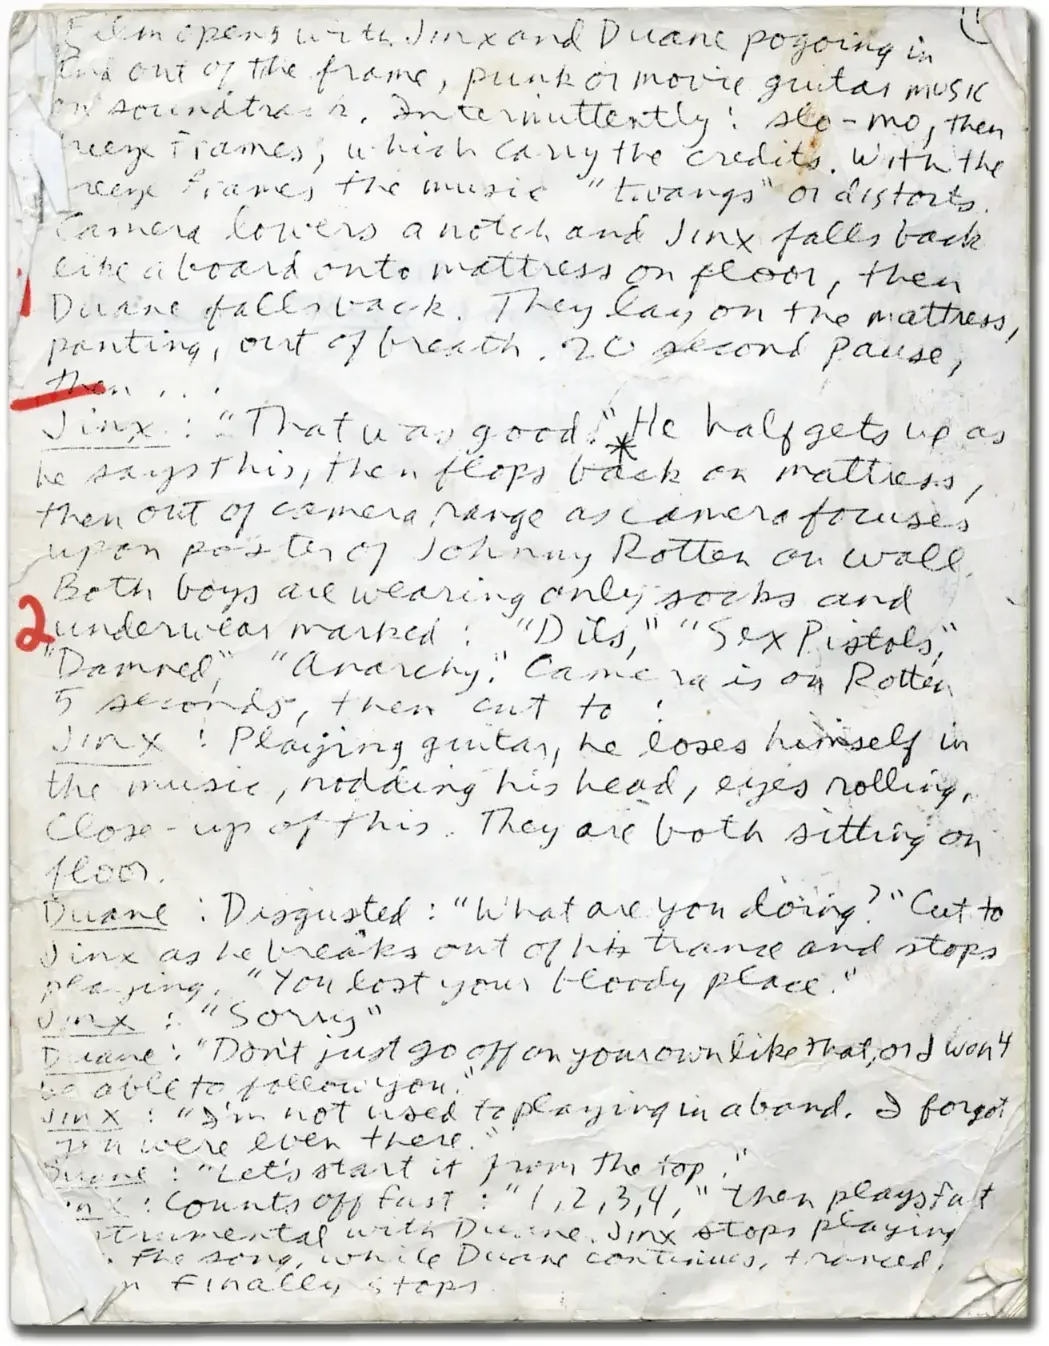 (1
Film opens with Jinx and Duane pogoing in
and out of the frame, punk or movie guitar music
on soundtrack. Intermittently: slo-mo, then
freeze frames, which carry the credits. With the
freeze frames the music "twangs" or distorts.
Camera lowers a notch and Jinx falls back
like a board onto mattress on floor, then
Duane falls back. They lay on the mattress,
panting, out of breath. 20 second pause,
then...
Jinx: "That was good." * He half gets up as
he says this, then flops back on mattress,
then out of camera range as camera focuses
upon poster of Johnny Rotten on wall.
Both boys are wearing only socks and
2 underwear marked: "Dils," "Sex Pistols,"
"Damned," "Anarchy." Camera is on Rotten
5 seconds, then cut to:
Jinx: Playing guitar, he loses himself in
the music, nodding his head, eyes rolling.
Close-up of this. They are both sitting on
floor.
Duane: Disgusted: "What are you doing?" Cut to
Jinx as he breaks out of his trance and stops
playing. "You lost your bloody place."
Jinx: "Sorry"
Duane: "Don't just go off on your own like that, or I won't
be able to follow you."
Jinx: "I'm not used to playing in a band. I forgot
you were even there."
Duane: "Let's start it from the top."
Jinx: Counts off fast: "1,2,3,4," then plays fast
instrumental with Duane. Jinx stops playing
the song, while Duane continues, tranced,
Finally stops.